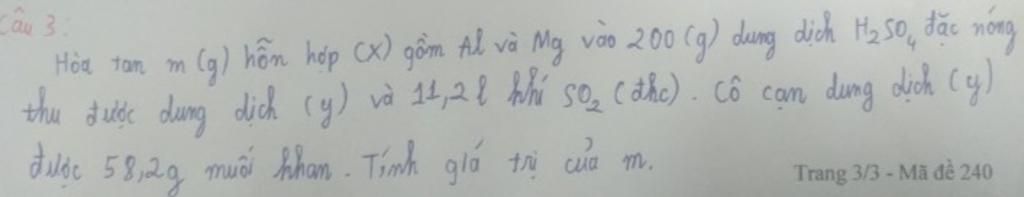 Câu 3:
Hòa tan m (g) hỗn hợp (X) gồm Al và Mg vào 200 (g) dung dịch H₂SO₄ đặc nóng
thu được dung dịch (y) và 11,2 l khí SO₂ (đkc). Cô cạn dung dịch (y)
được 58,2g muối khan. Tính giá trị của m.
Trang 3/3 - Mã đề 240